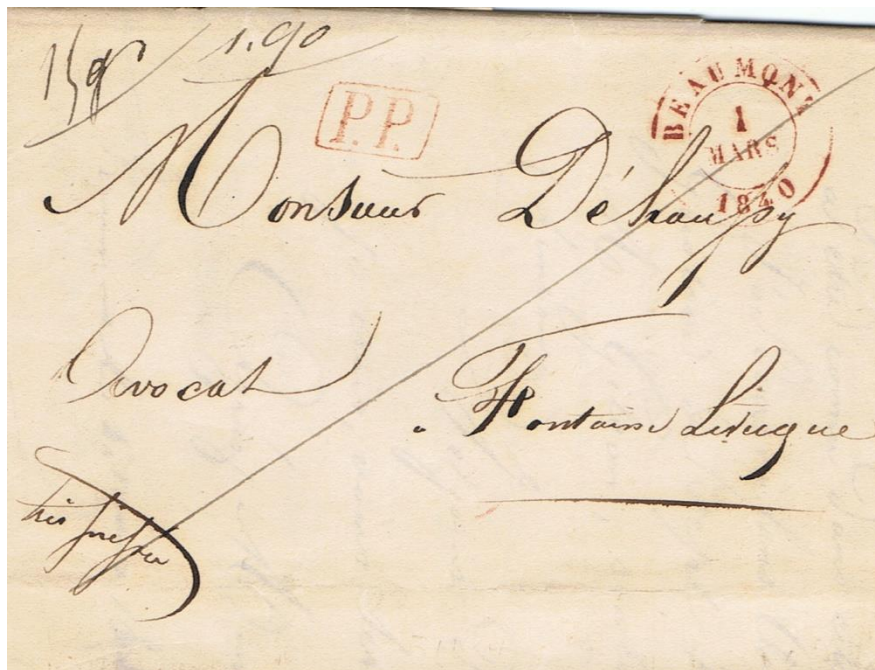 1.90
P.P.
BEAUMONT
1
MARS
1840
Monsieur Déhaussy
Avocat
a Fontaine Lévêque
très pressée